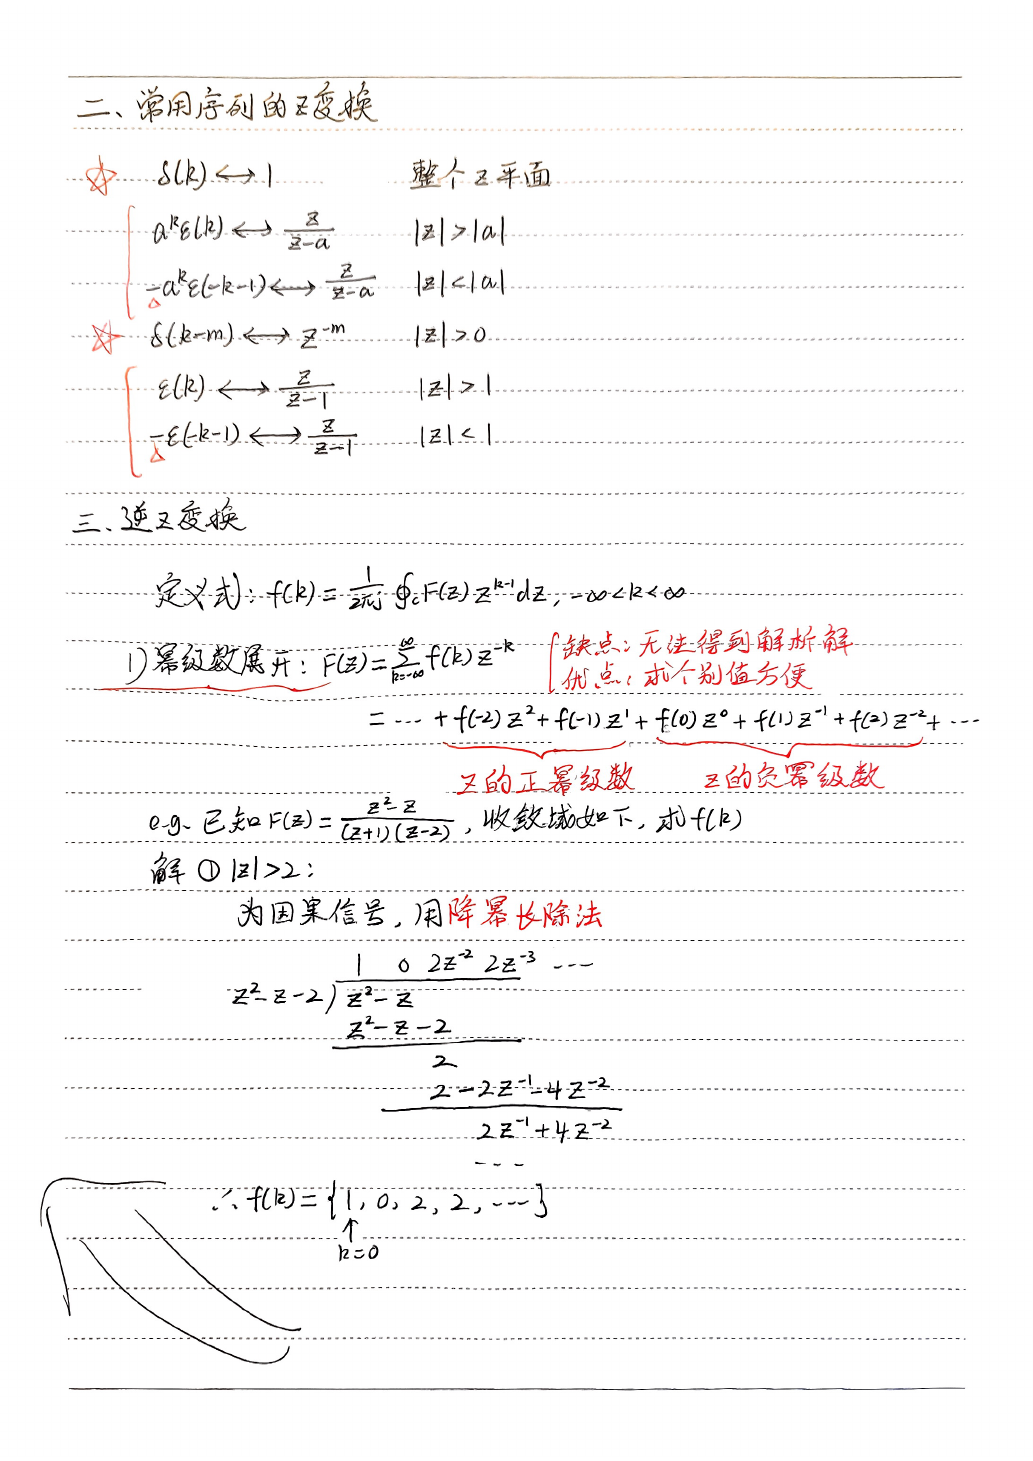 二、常用序列的Z变换
δ(k) ↔ 1 整个Z平面
a^k ε(k) ↔ z/(z-a) |z|>|a|
-a^k ε(-k-1) ↔ z/(z-a) |z|<|a|
δ(k-m) ↔ z^-m |z|>0
ε(k) ↔ z/(z-1) |z|>1
-ε(-k-1) ↔ z/(z-1) |z|<1
三、逆Z变换
定义式: f(k) = 1/(2πj) ∮c F(z) z^(k-1) dz, -∞<k<∞
缺点: 无法得到解析解
1) 幂级数展开: F(z) = ∑_{k=-∞}^{∞} f(k) z^-k
优点: 求个别值方便
= ··· + f(-2) z^2 + f(-1) z^1 + f(0) z^0 + f(1) z^-1 + f(2) z^-2 + ···
Z的正幂级数 Z的负幂级数
e.g. 已知F(z) = (z^2-z)/((z+1)(z-2)), 收敛域如下, 求f(k)
解 ① |z|>2:
为因果信号, 用降幂长除法
1 0 2z^-2 2z^-3 ···
z^2-z-2 ) z^2-z
z^2-z-2
2
2-2z^-1-4z^-2
2z^-1+4z^-2
···
∴ f(k) = {1, 0, 2, 2, ···}
↑
k=0